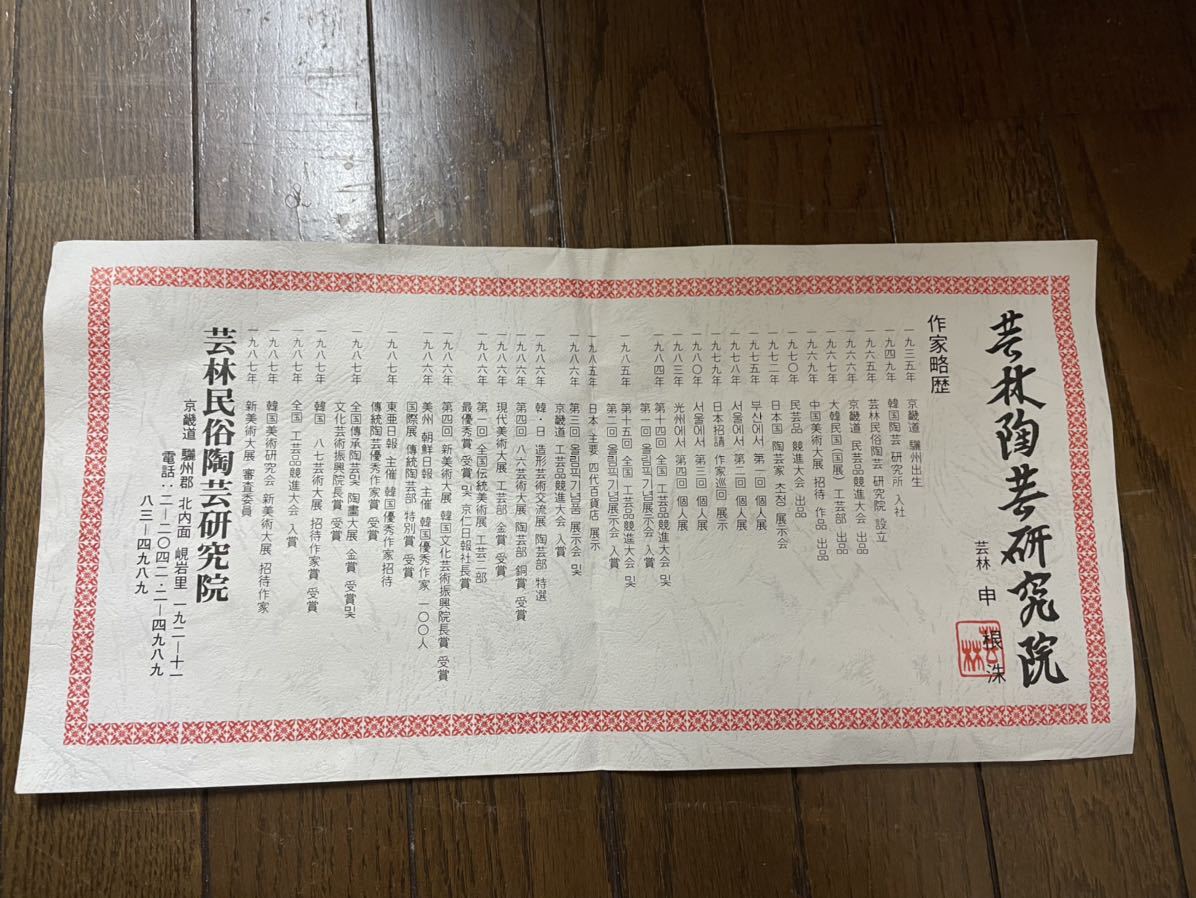 芸林陶芸研究院
芸林 申 根 洙
芸林
作家略歴
一九三五年 京畿道 驪州出生
一九四九年 韓国陶芸 研究所 入社
一九六五年 芸林民俗陶芸 研究院 設立
一九六六年 京畿道 民芸品競進大会 出品
一九六七年 大韓民国(国展) 工芸部 出品
一九六九年 中国美術大展 招待 作品 出品
一九七〇年 民芸品 競進大会 出品
一九七二年 日本国 陶芸家 초청 展示会
一九七五年 부산에서 第一回 個人展
一九七八年 서울에서 第二回 個人展
一九七九年 日本招請 作家巡回 展示
一九八〇年 서울에서 第三回 個人展
一九八三年 光州에서 第四回 個人展
一九八四年 第十四回 全国 工芸品競進大会 및
第一回 올림픽기념展示会 入賞
一九八五年 第十五回 全国 工芸品競進大会 및
第二回 올림픽기념展示会 入賞
一九八五年 日本 主要 四代百貨店 展示
一九八六年 第三回 올림픽기념품 展示会 및
京畿道 工芸品競進大会 入賞
一九八六年 韓・日 造形芸術交流展 陶芸部 特選
一九八六年 第四回 八六芸術大展 陶芸部 銅賞 受賞
一九八六年 現代美術大展 工芸部 金賞 受賞
一九八六年 第一回 全国伝統美術展 工芸二部
最優秀賞 受賞 및 京仁日報社長賞
一九八六年 第四回 新美術大展 韓国文化芸術振興院長賞 受賞
一九八六年 美州 朝鮮日報 主催 韓国優秀作家 一〇〇人
国際展 傳統陶芸部 特別賞 受賞
一九八七年 東亜日報 主催 韓国優秀作家招待
傳統陶芸優秀作家賞 受賞
一九八七年 全国傳承陶芸및 陶畫大展 金賞 受賞및
文化芸術振興院長賞 受賞
一九八七年 韓国 八七芸術大展 招待作家賞 受賞
一九八七年 全国 工芸品競進大会 入賞
一九八七年 韓国美術研究会 新美術大展 招待作家
一九八七年 新美術大展 審査委員
芸林民俗陶芸研究院
京畿道 驪州郡 北内面 峴岩里 一九二―十一
電話:二―二〇四二・二―四九八九
八三―四九八九